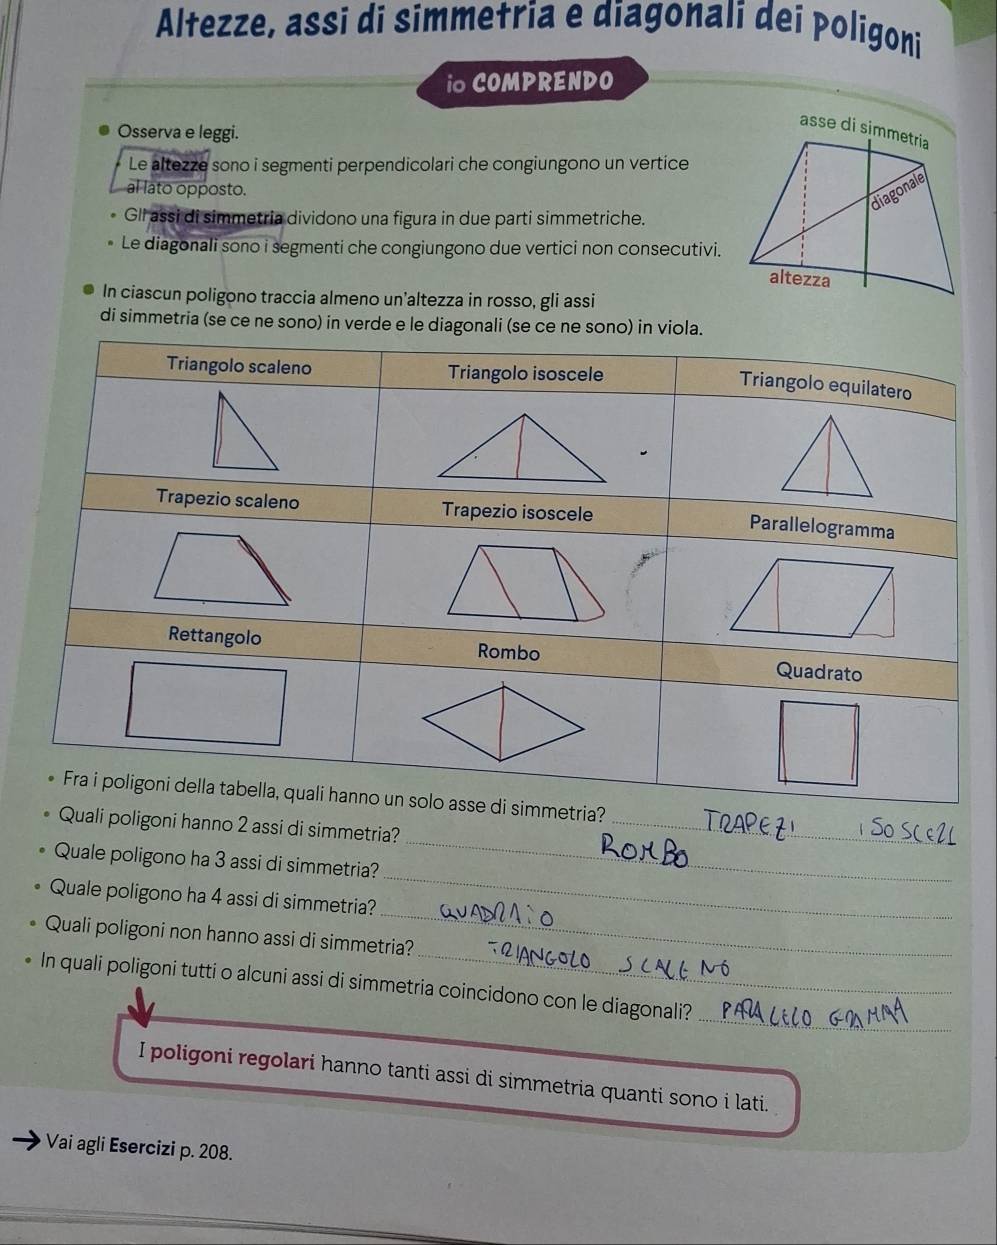 Altezze, assi di simmetria e diagonali dei poligoni
io COMPRENDO
Osserva e leggi.
• Le altezze sono i segmenti perpendicolari che congiungono un vertice
al lato opposto.
• Gli assi di simmetria dividono una figura in due parti simmetriche.
• Le diagonali sono i segmenti che congiungono due vertici non consecutivi.
asse di simmetria
diagonale
altezza
In ciascun poligono traccia almeno un'altezza in rosso, gli assi
di simmetria (se ce ne sono) in verde e le diagonali (se ce ne sono) in viola.
Triangolo scaleno Triangolo isoscele Triangolo equilatero
Trapezio scaleno Trapezio isoscele Parallelogramma
Rettangolo Rombo Quadrato
• Fra i poligoni della tabella, quali hanno un solo asse di simmetria? TRAPEZI ISOSCELI
• Quali poligoni hanno 2 assi di simmetria? ROMBO
• Quale poligono ha 3 assi di simmetria?
• Quale poligono ha 4 assi di simmetria? QUADRATO
• Quali poligoni non hanno assi di simmetria? TRIANGOLO SCALENO
• In quali poligoni tutti o alcuni assi di simmetria coincidono con le diagonali? PARALELOGRAMMA
I poligoni regolari hanno tanti assi di simmetria quanti sono i lati.
Vai agli Esercizi p. 208.